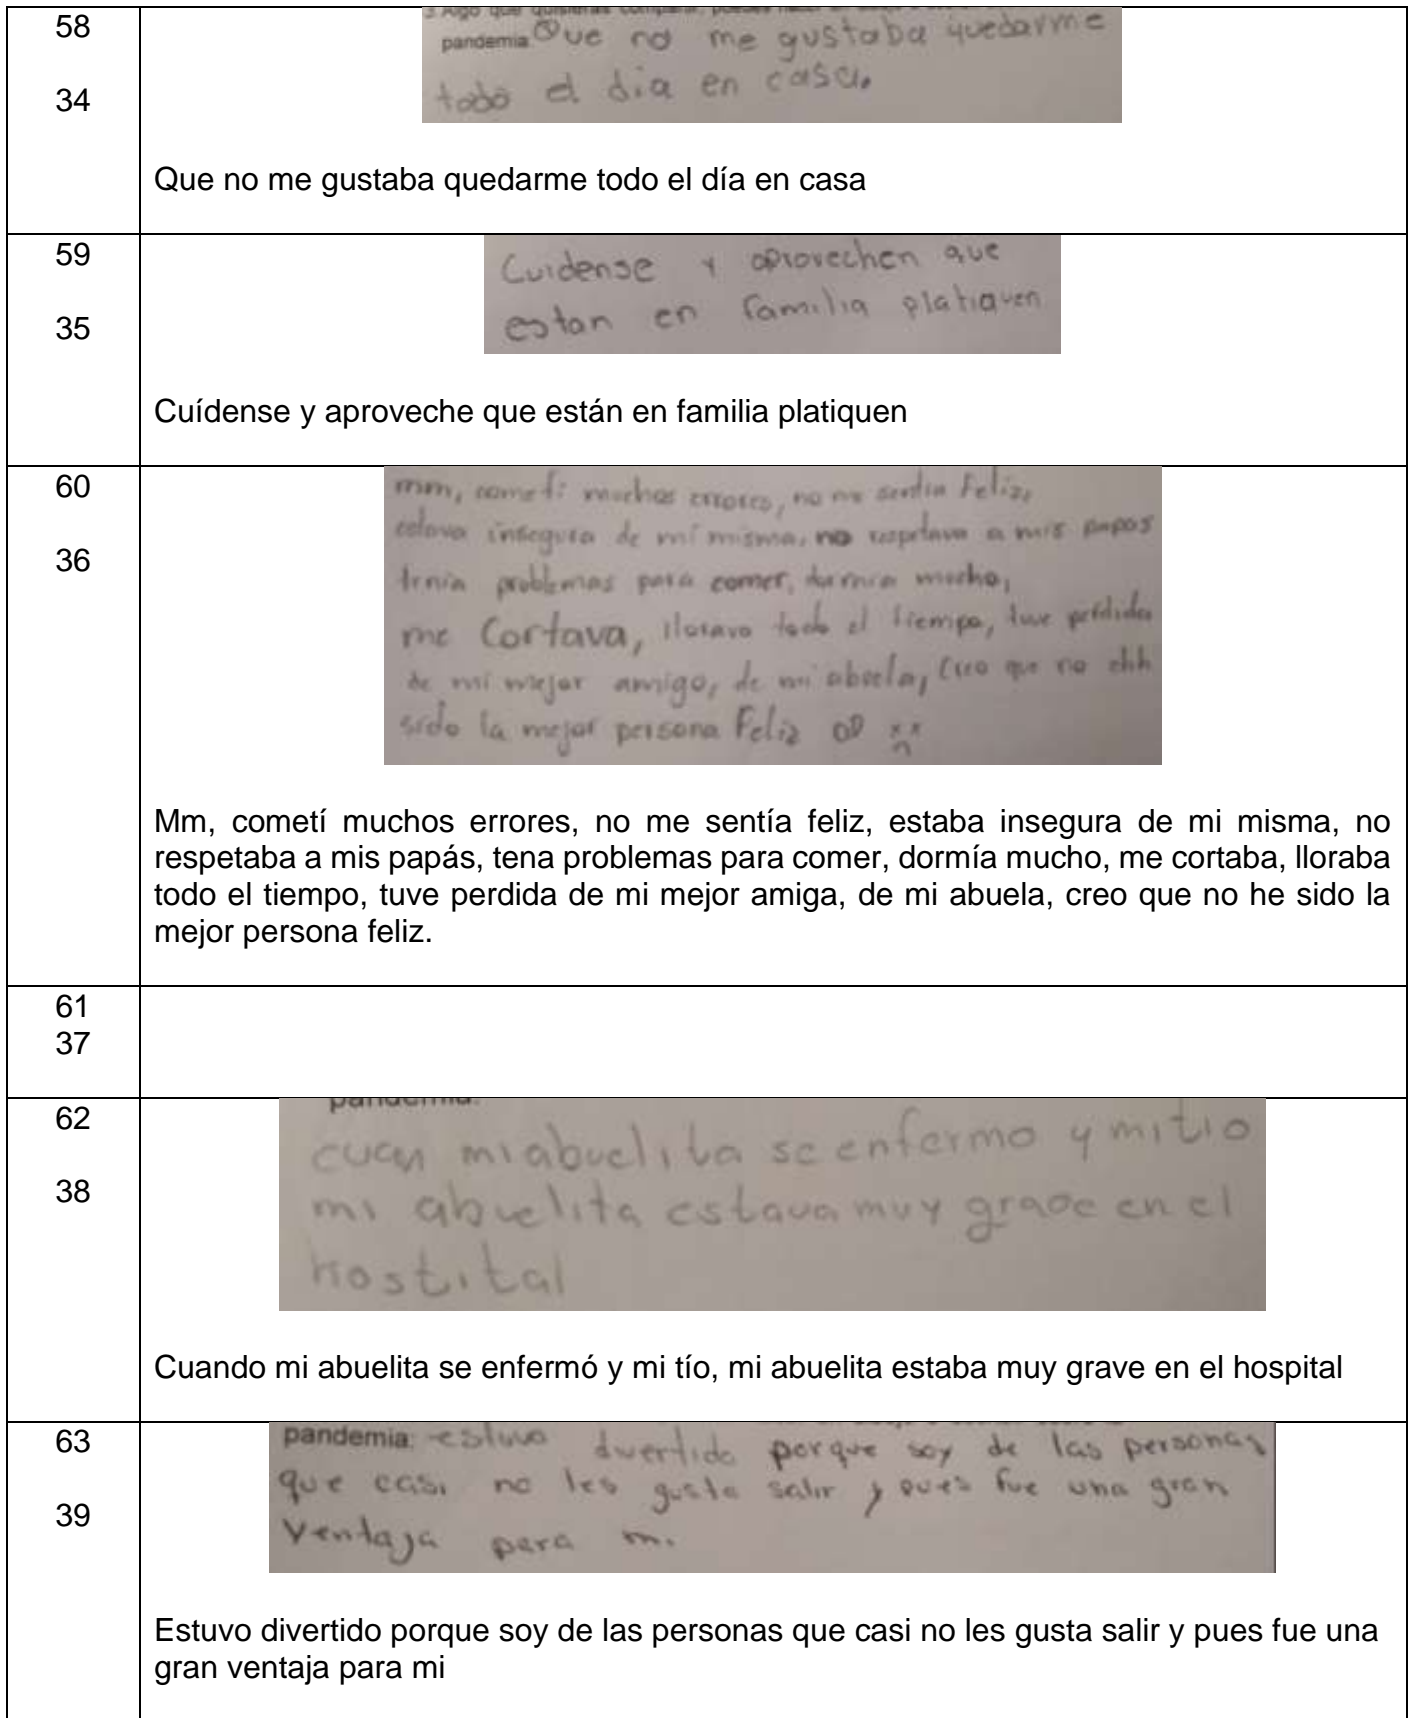 58
34
3. Algo que quisieras compartir, puedes hacer un dibujo o
pandemia. Que no me gustaba quedarme
todo el dia en casa.
Que no me gustaba quedarme todo el día en casa
59
35
Cuidense y aprovechen que
estan en familia platiquen
Cuídense y aproveche que están en familia platiquen
60
36
mm, cometi muchos errores, no me sentia Feliz,
estava insegura de mí misma, no respetava a mis papas
tenia problemas para comer, dormia mucho,
me Cortava, llorava todo el tiempo, tuve perdida
de mi mejor amigo, de mi abuela, Creo que no ehh
sido la mejor persona Feliz
Mm, cometí muchos errores, no me sentía feliz, estaba insegura de mi misma, no
respetaba a mis papás, tena problemas para comer, dormía mucho, me cortaba, lloraba
todo el tiempo, tuve perdida de mi mejor amiga, de mi abuela, creo que no he sido la
mejor persona feliz.
61
37
62
38
pandemia.
mi abuelita se enfermo y mi tio
mi abuelita estava muy grave en el
hostital
Cuando mi abuelita se enfermó y mi tío, mi abuelita estaba muy grave en el hospital
63
39
pandemia: estuvo divertido porque soy de las personas
que casi no les gusta salir y pues fue una gran
Ventaja para mi
Estuvo divertido porque soy de las personas que casi no les gusta salir y pues fue una
gran ventaja para mi